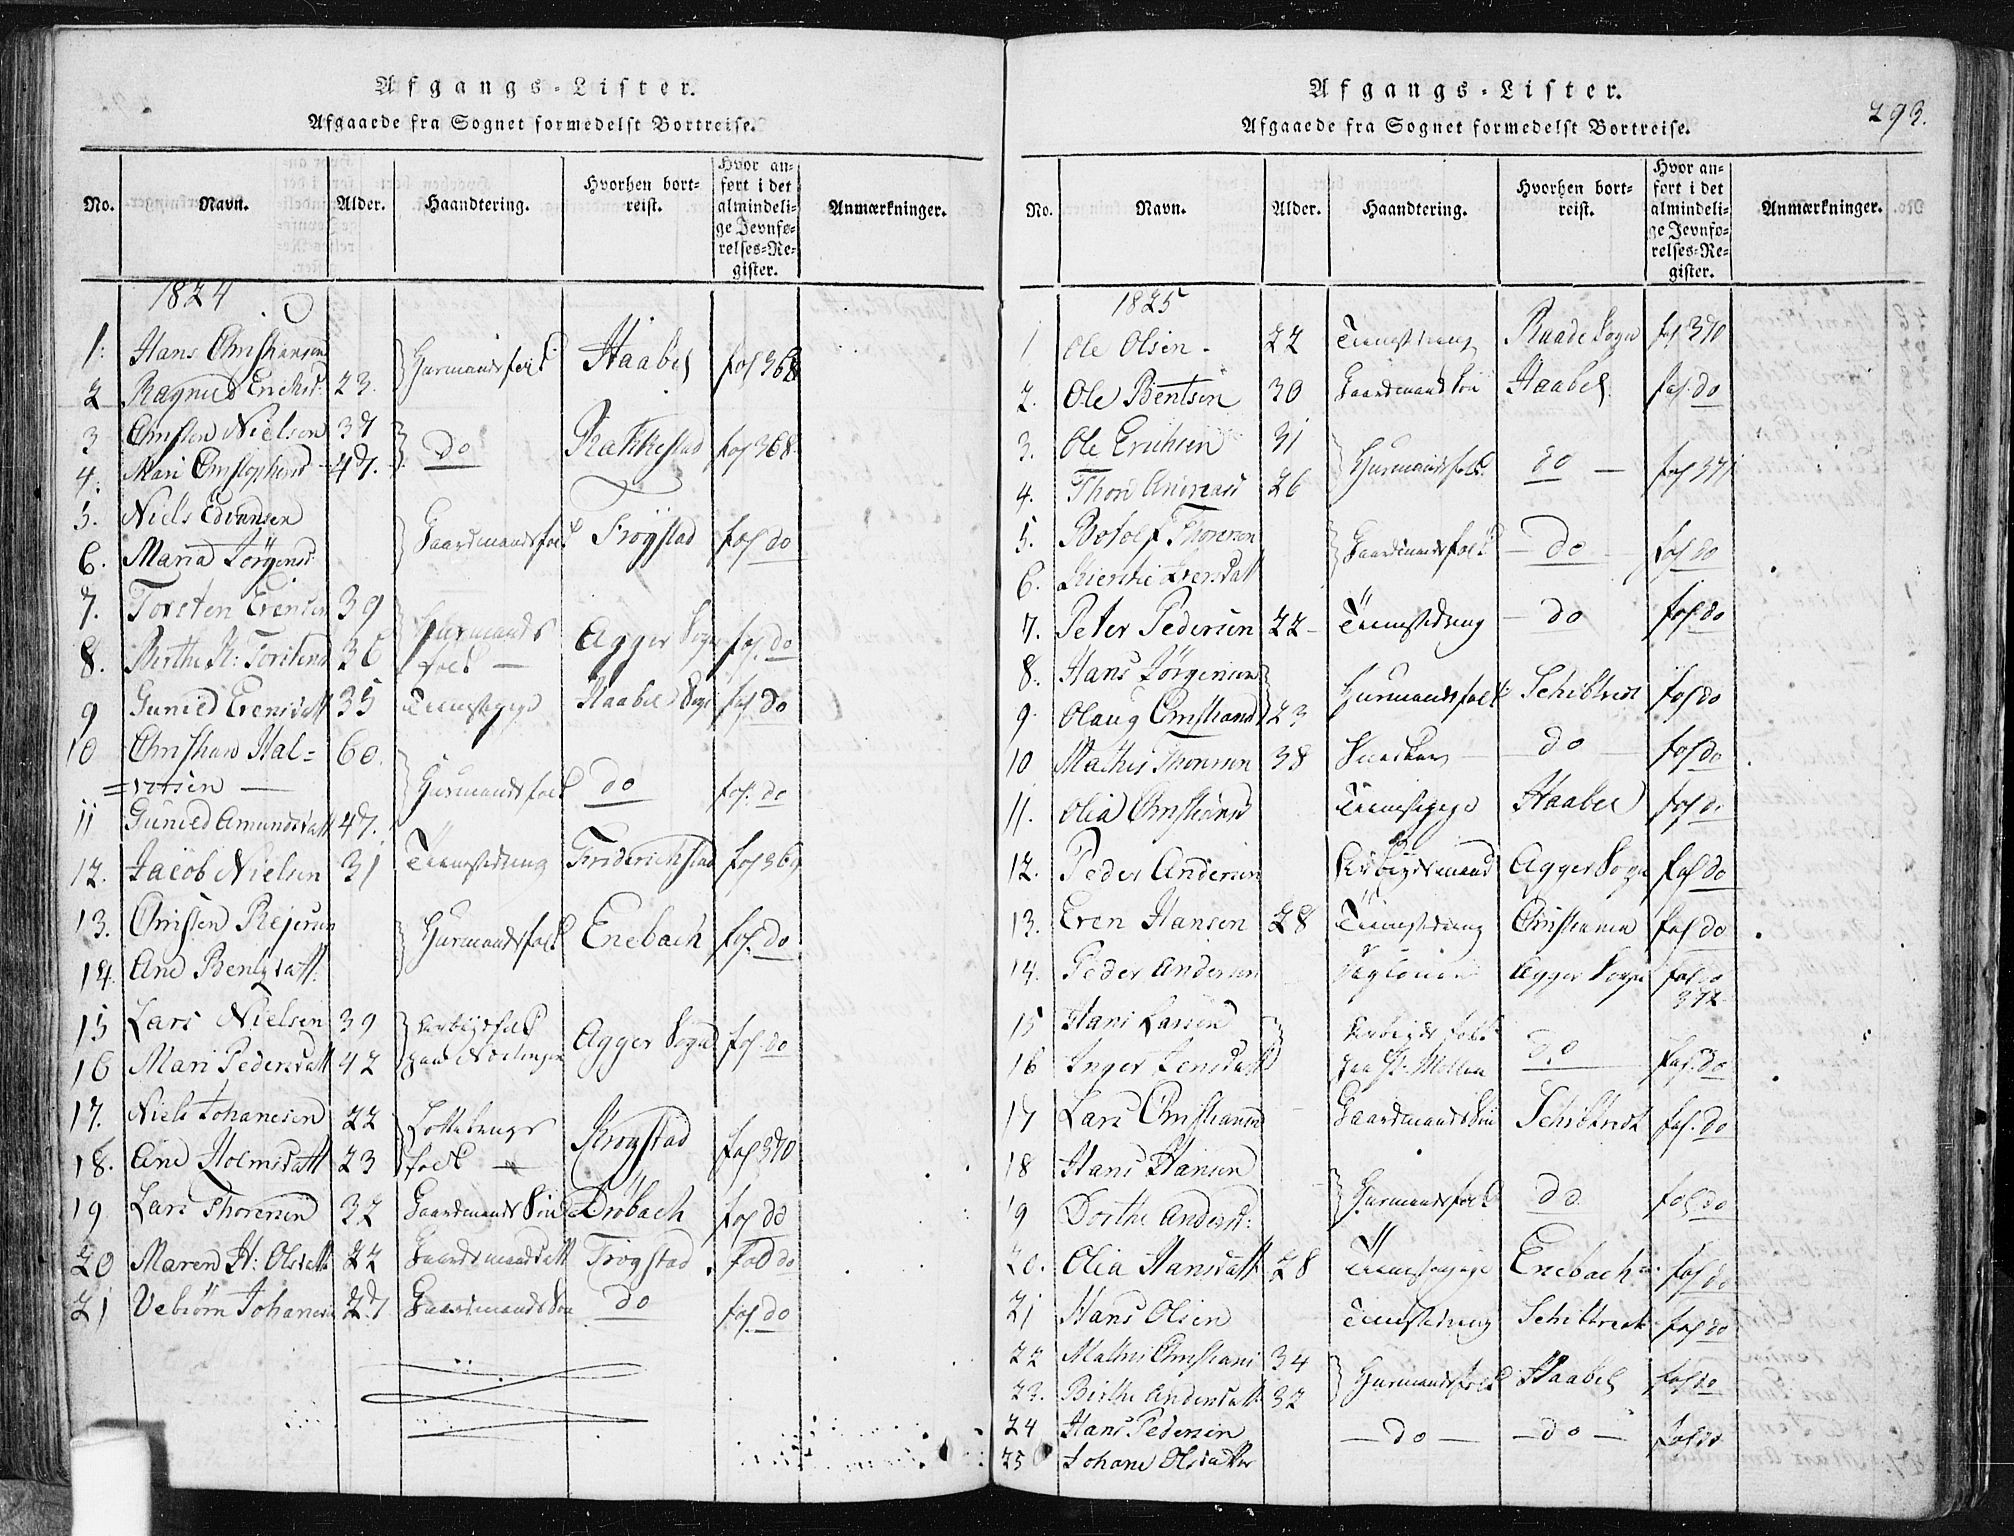 Afgangs-Lister.
Afgaaede fra Sognet formedelst Bortreise.
No. Navn. Alder. Haandtering. Hvorhen bortreist. Hvor anført i det almindelige Jevnførelses-Register. Anmærkninger.
1824
1. Hans Christiansen Huusmandsfolk Haabel fol 368
2 Ragnild Erichsd. 23.
3 Christen Nielsen 37 do Rakkestad fol 368
4. Mari Christophersd 47.
5. Niels Edvansen Gaardmandsfolk Trøgstad fol do
6. Maria Jörgensd.
7. Torsten Evensen 39 Huusmands folk Agger Sogn fol. do
8. Birthe K: Torstensd 36
9 Gunild Evensdatt 35 Tienestepige Haabel Sogn fol do
10 Christian Hal=
=vorsen 60. Huusmandsfolk do fol. do
11 Gunild Amundsdatt 47.
12. Jacob Nielsen 31 Tienestedreng Friderichstad fol 369
13. Christen Rejersen Huusmandsfolk Enebach fol. do
14. Ane Bentsdatt.
15 Lars Nielsen 39 Arbeidsfolk Agger Sogn fol. do
16 Mari Pedersdatt 42 paa
17. Niels Johanesen 22 folk Krogstad fol 370
18. Ane Holmsdatt 23
19 Lars Thoresen 32 Gaardmands Søn Drøbach fol do
20 Maren H: Olsdatt 22 Gaardmandsdatt Trøgstad fol do
21 Vebiörn Johanesen 27 Gaardmands Søn do fol. do
Afgangs-Lister.
293.
Afgaaede fra Sognet formedelst Bortreise.
No. Navn. Alder. Haandtering. Hvorhen bortreist. Hvor anført i det almindelige Jevnførelses-Register. Anmærkninger.
1825
1 Ole Olsen 22 Tienestdreng Raade Sogn fol 370
2. Ole Bentsen 30 Gaardmands Søn Haabel fol. do
3. Ole Erichsen 31 Huusmandsfolk do fol 371
4. Thore Andreasd 26
5. Botolf Thoresen Gaardmandsfolk do fol do
6. Iversdatt
7. Peter Pedersen 22 Tienestedreng do fol do
8. Hans Jörgensen Huusmandsfolk Schibtvedt fol do
9. Olaug Christiansd 23
10 Mathis Thoresen 38 do fol do
11. Olia Christiansd Tienestepige Haabel fol do
12. Peder Andersen Arbeidsmand Agger Sogn fol do
13. Even Hansen 28 Tienestedreng Christiania fol do
14. Peder Andersen Agger Sogn fol do
372
15 Hans Larsen Arbeids folk do fol. do
16 Inger Jensdatt paa
17 Lars Christiansen Gaardmands Søn Schibtvedt fol. do
18 Hans Hansen Huusmandsfolk do fol do
19 Dorthe Andersd:
20. Olia Hansdatt 28 Tienestepige Enebach fol do
21 Hans Olsen Tienestedreng Schibtvedt fol do
22 Mathis Christians 34 Huusmandsfolk Haabel fol do
23. Birthe Andersdatt 32
24 Hans Pedersen do do fol do
25 Johane Olsdatter